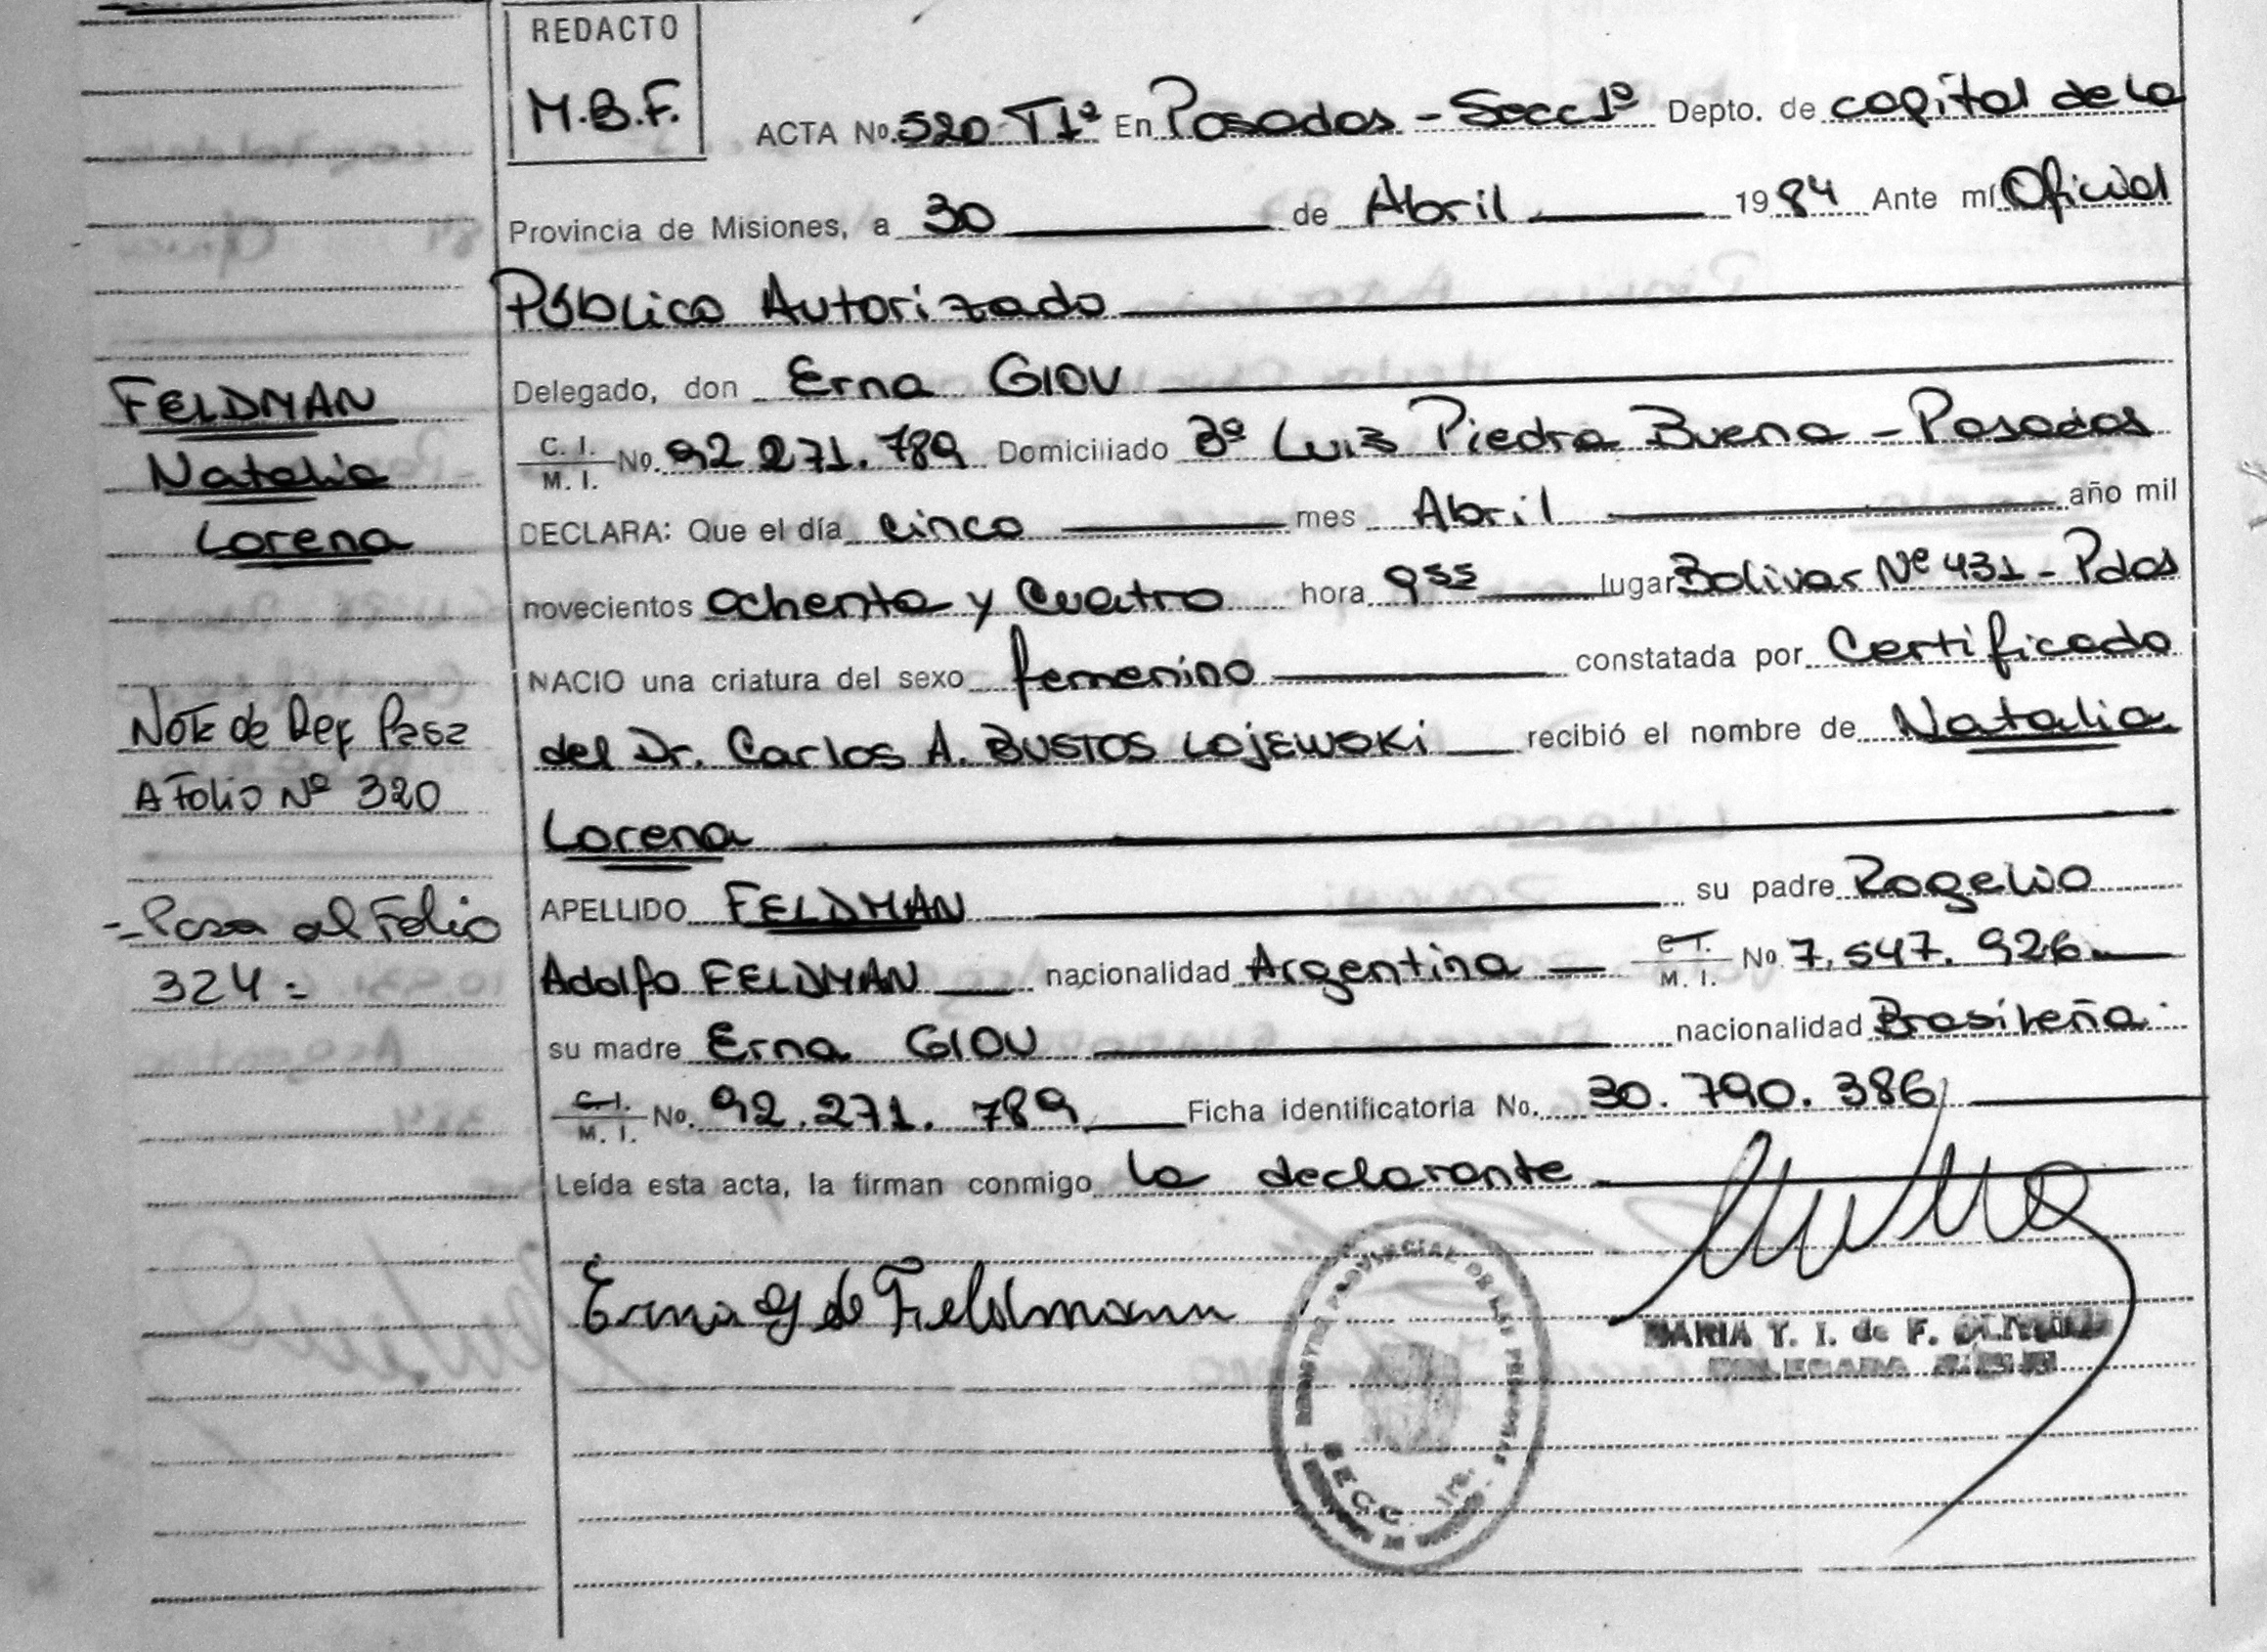 REDACTO
M.B.F.
ACTA Nº 520 T1º En Posadas - Secc 1º Depto. de capital de la
Provincia de Misiones, a 30 de Abril 1984 Ante mí Oficial
Público Autorizado
Delegado, don Erna GIOU
C. I. / M. I. Nº 92.271.789 Domiciliado Bº Luis Piedra Buena - Posadas
DECLARA: Que el día cinco mes Abril año mil
novecientos ochenta y cuatro hora 9 55 lugar Bolivar Nº 431 - Pdas
NACIO una criatura del sexo femenino constatada por Certificado
del Dr. Carlos A. BUSTOS LOJEWSKI recibió el nombre de Natalia
Lorena
APELLIDO FELDMAN su padre Rogelio
Adolfo FELDMAN nacionalidad Argentina C. I. / M. I. Nº 7.547.926
su madre Erna GIOU nacionalidad Brasileña
C. I. / M. I. No. 92.271.789 Ficha identificatoria No. 30.790.386
Leída esta acta, la firman conmigo la declarante
Erna G de Fieldmann
MARIA T. I. de F.
DELEGADA
REGISTRO PROVINCIAL DE LAS PERSONAS
SECC. 1ra.
FELDMAN
Natalia
Lorena
Nota de Ref Pasa
A Folio Nº 320
- Pasa al Folio
324 =